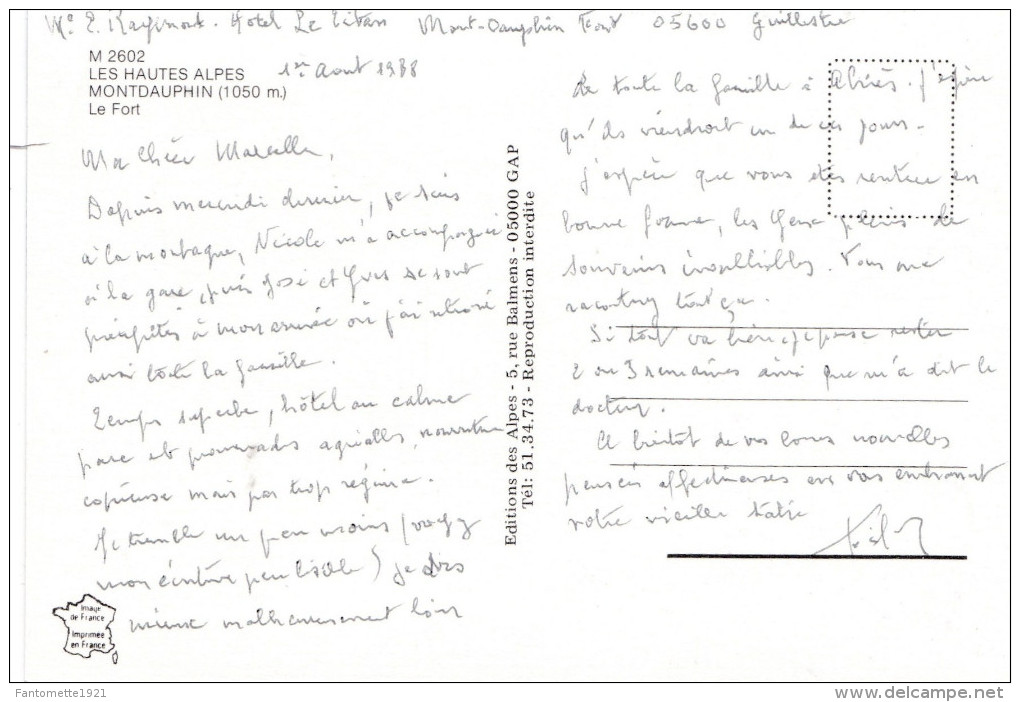 Hotel Le Mont-Dauphin Fort 05600 Guillestre
M 2602
LES HAUTES ALPES
MONTDAUPHIN (1050 m.)
Le Fort
1er Aout 1988
Ma Chère Marcelle,
Depuis mercredi dernier, je suis
à la montagne, Nicole m'a accompagnée
à la gare, puis José et Yves se sont
précipités à mon arrivée où j'ai retrouvé
aussi toute la famille.
Temps superbe, hôtel au calme
parc et promenades agréables, nourriture
copieuse mais pas trop régime.
Je tremble un peu moins (voyez
mon écriture peu lisible) je dors
mieux malheureusement loin
Image
de France
Imprimée
en France
Editions des Alpes - 5, rue Balmens - 05000 GAP
Tél: 51.34.73 - Reproduction interdite
de toute la famille à Abriès. J'espère
qu'ils viendront un de ces jours.
J'espère que vous êtes rentrée en
bonne forme, les yeux pleins de
souvenirs inoubliables. Vous me
raconterez tout ça.
Si tout va bien je pense rester
2 ou 3 semaines ainsi que m'a dit le
docteur.
A bientôt de vos bonnes nouvelles
pensées affectueuses en vous embrassant
votre vieille
Fantomette1921
www.delcampe.net